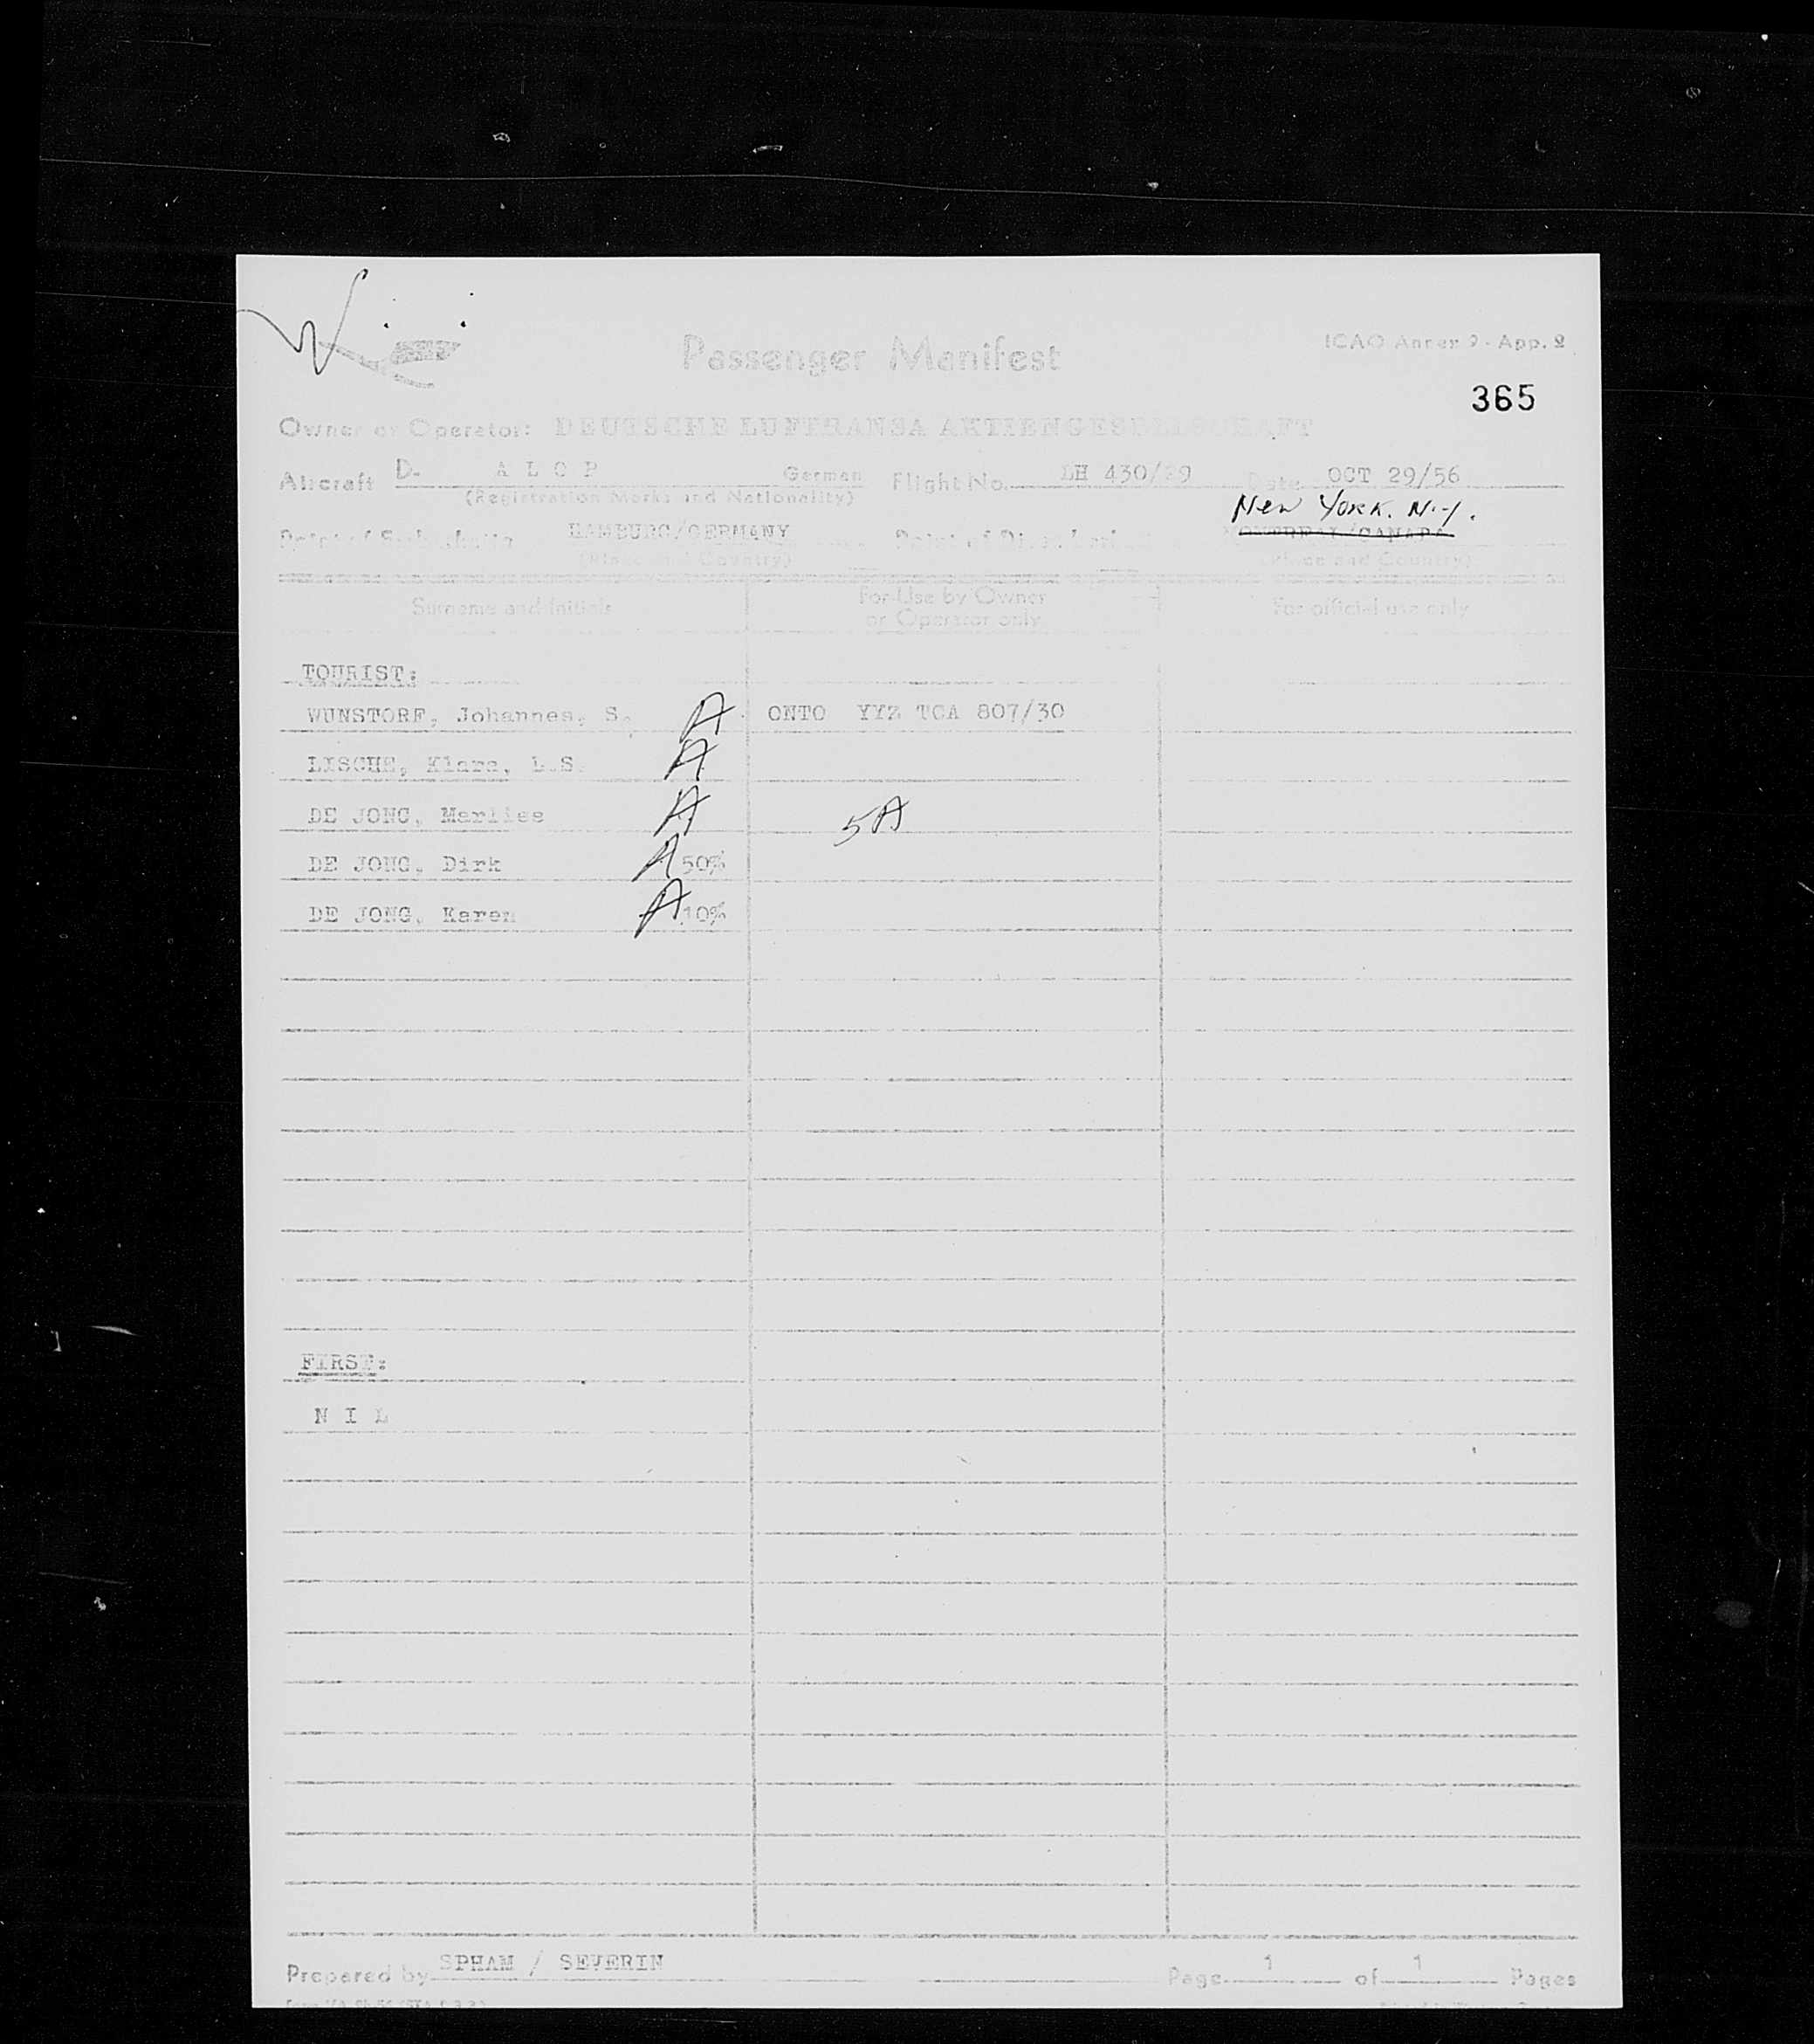 Passenger Manifest
ICAO Annex 9 - App. 2
365
Owner or Operator: DEUTSCHE LUFTHANSA AKTIENGESELLSCHAFT
Aircraft D- A L O P German Flight No. LH 430/29 Date OCT 29/56
(Registration Marks and Nationality)
New York. N.Y.
Point of Embarkation HAMBURG/GERMANY Point of Disembarkation MONTREAL/CANADA
(Place and Country) (Place and Country)
Surname and Initials For Use by Owner or Operator only For official use only
TOURIST:
WUNSTORF, Johannes, S. A ONTO YYZ TCA 807/30
LISCHE, Klara, L.S. A
DE JONG, Marlies A 5A
DE JONG, Dirk A 50%
DE JONG, Karen A 10%
FIRST:
N I L
Prepared by SPHAM / SEVERIN Page 1 of 1 Pages